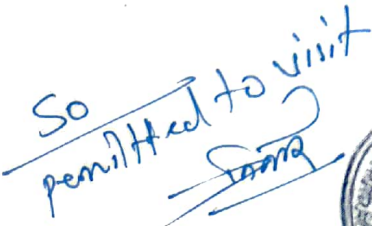 So
permitted to visit